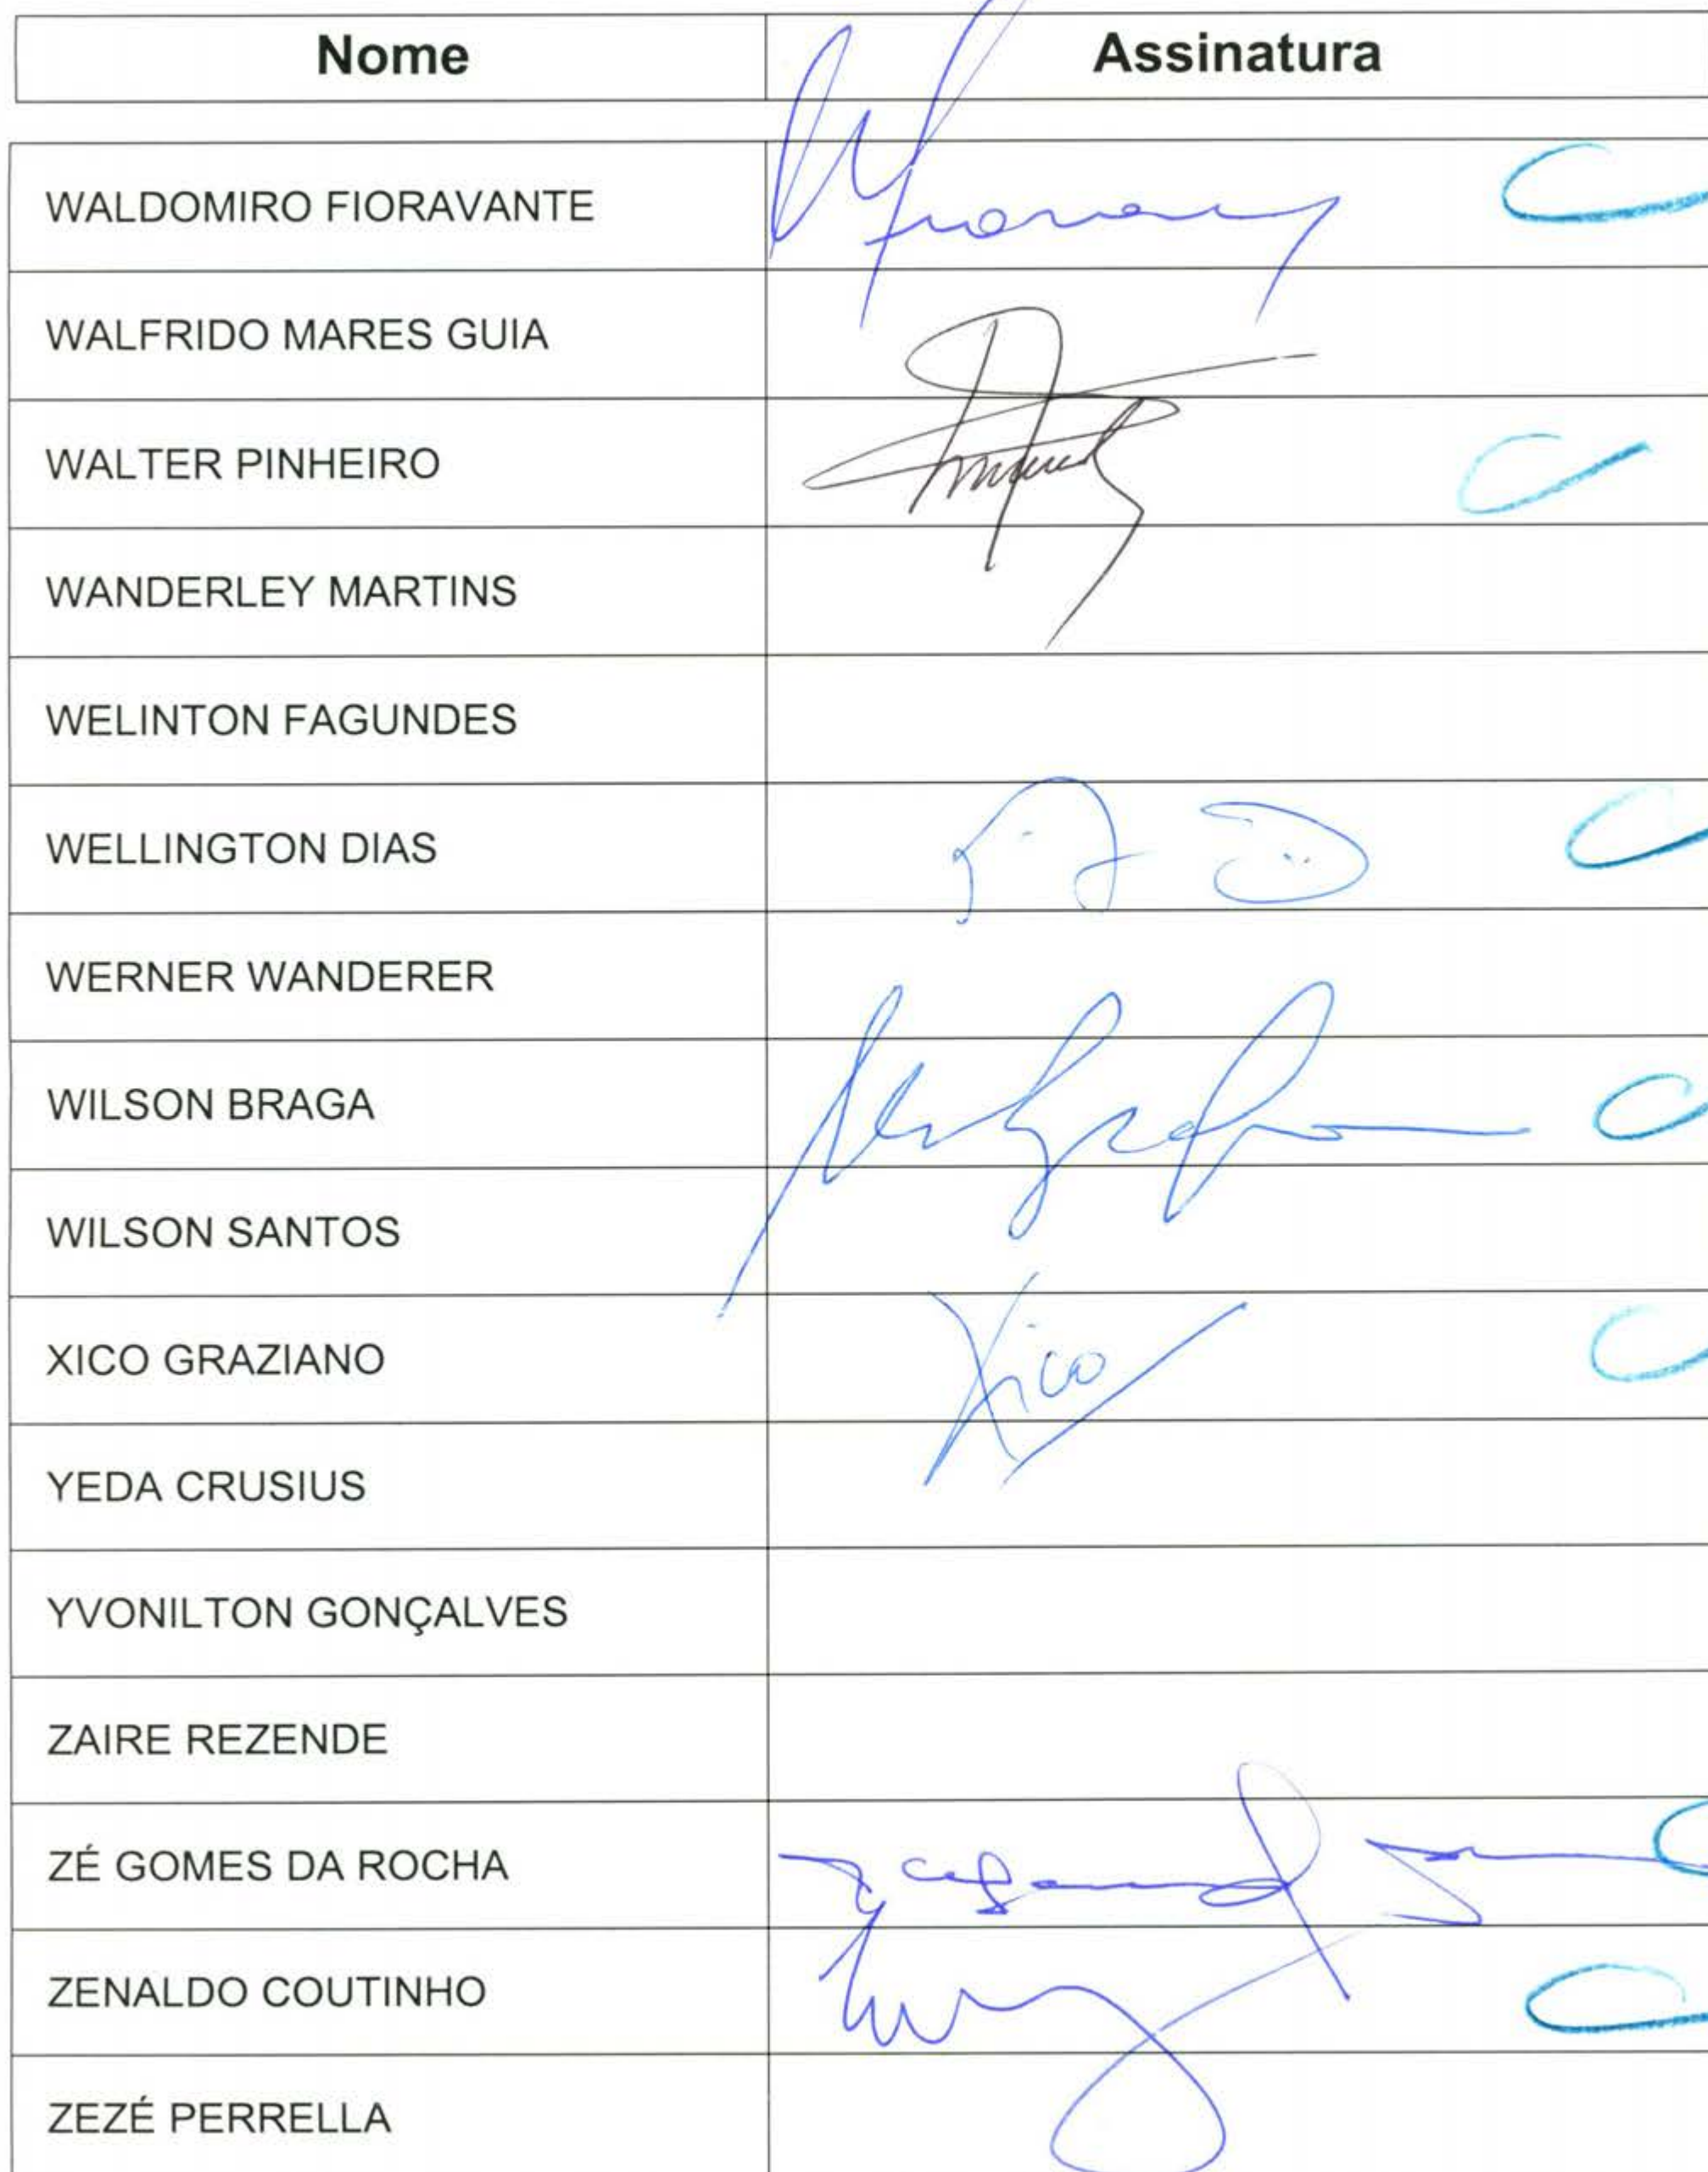 Nome Assinatura
WALDOMIRO FIORAVANTE
WALFRIDO MARES GUIA
WALTER PINHEIRO
WANDERLEY MARTINS
WELINTON FAGUNDES
WELLINGTON DIAS
WERNER WANDERER
WILSON BRAGA
WILSON SANTOS
XICO GRAZIANO Xico
YEDA CRUSIUS
YVONILTON GONÇALVES
ZAIRE REZENDE
ZÉ GOMES DA ROCHA
ZENALDO COUTINHO
ZEZÉ PERRELLA